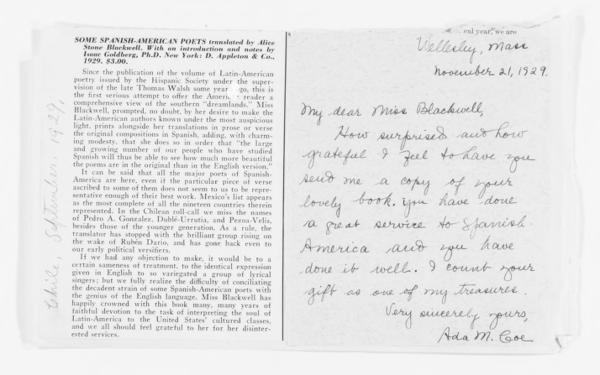 SOME SPANISH-AMERICAN POETS translated by Alice
Stone Blackwell. With an introduction and notes by
Isaac Goldberg, Ph.D. New York: D. Appleton & Co.,
1929. $3.00.
Since the publication of the volume of Latin-American
poetry issued by the Hispanic Society under the super-
vision of the late Thomas Walsh some year go, this is
the first serious attempt to offer the Ameri reader a
comprehensive view of the southern "dreamlands." Miss
Blackwell, prompted, no doubt, by her desire to make the
Latin-American authors known under the most auspicious
light, prints alongside her translations in prose or verse
the original compositions in Spanish, adding, with charm-
ing modesty, that she does so in order that "the large
and growing number of our people who have studied
Spanish will thus be able to see how much more beautiful
the poems are in the original than in the English version."
It can be said that all the major poets of Spanish-
America are here, even if the particular piece of verse
ascribed to some of them does not seem to us to be repre-
sentative enough of their best work. Mexico's list appears
as the most complete of all the nineteen countries therein
represented. In the Chilean roll-call we miss the names
of Pedro A. Gonzalez, Dublé-Urrutia, and Pezoa-Velis,
besides those of the younger generation. As a rule, the
translator has stopped with the brilliant group rising on
the wake of Rubén Dario, and has gone back even to
our early political versifiers.
If we had any objection to make, it would be to a
certain sameness of treatment, to the identical expression
given in English to so variegated a group of lyrical
singers; but we fully realize the difficulty of conciliating
the decadent strain of some Spanish-American poets with
the genius of the English language. Miss Blackwell has
happily crowned with this book many, many years of
faithful devotion to the task of interpreting the soul of
Latin-America to the United States' cultured classes,
and we all should feel grateful to her for her disinter-
ested services.
Chile, September, 1929.
year, we are
Wellesley, Mass
November 21, 1929.
My dear Miss Blackwell,
How surprised and how
grateful I feel to have you
send me a copy of your
lovely book. You have done
a great service to Spanish-
America and you have
done it well. I count your
gift as one of my treasures.
Very sincerely yours,
Ada M. Coe